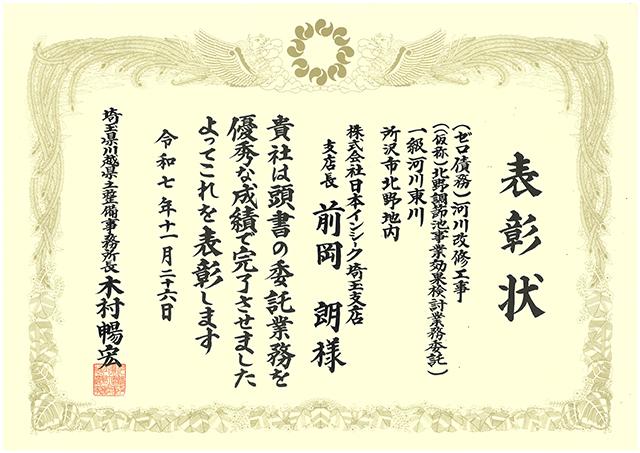 表彰状
（ゼロ債務）河川改修工事
（（仮称）北野調節池事業効果検討業務委託）
一級河川東川
所沢市北野地内
株式会社日本インシーク埼玉支店
支店長 前岡 朗様
貴社は頭書の委託業務を
優秀な成績で完了させました
よってこれを表彰します
令和七年十一月二十六日
埼玉県川越県土整備事務所長 木村暢宏